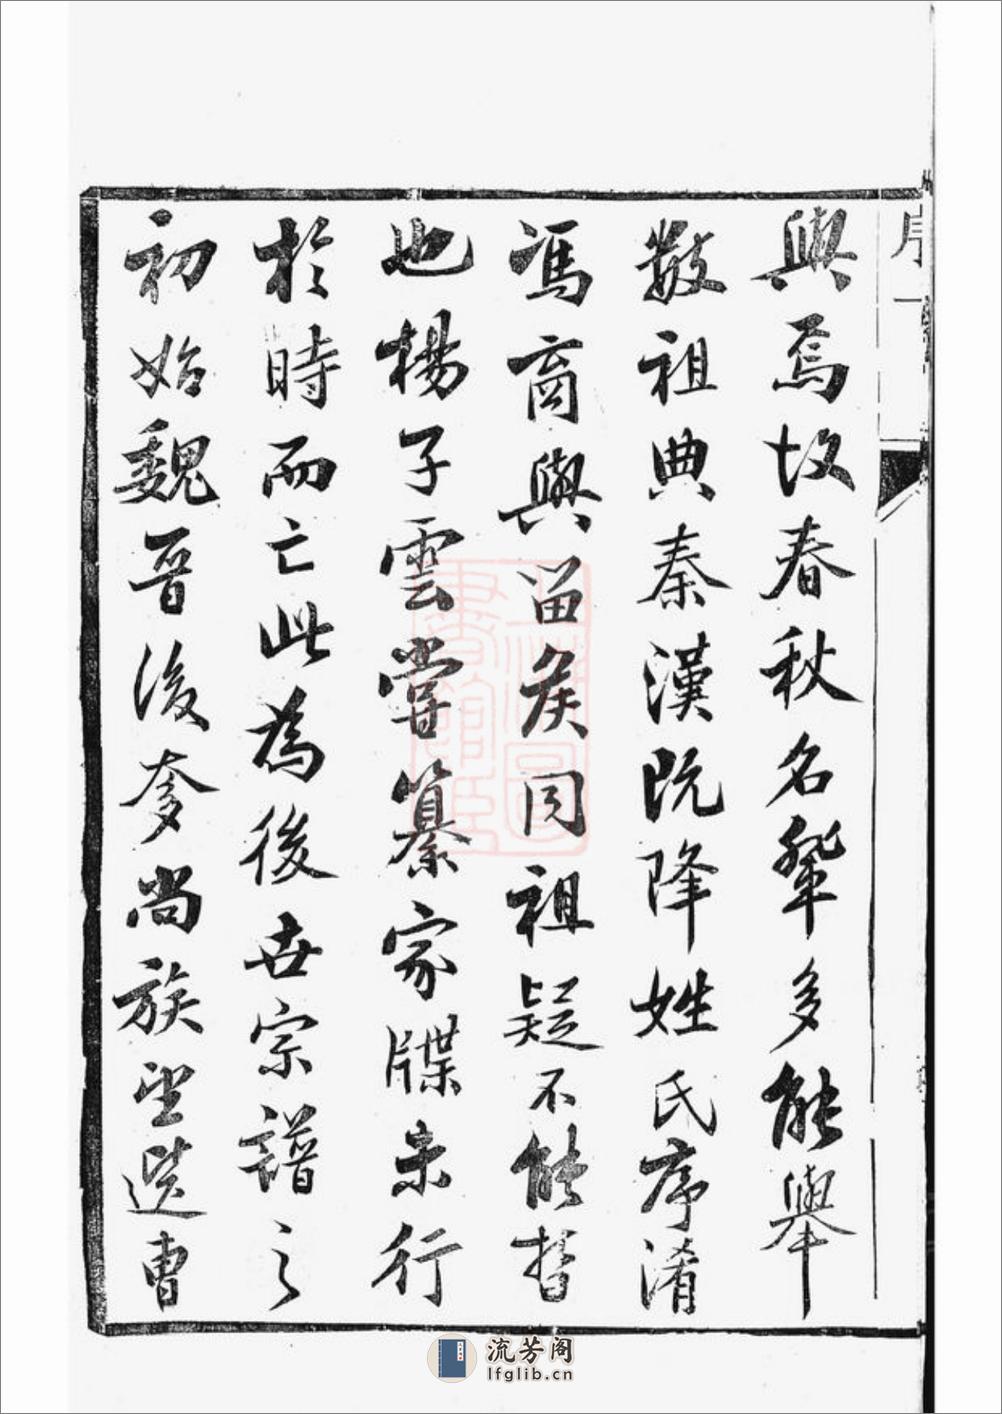 序
一
與焉故春秋名輩多能舉
數祖典秦漢既降姓氏序淆
馮商與留侯同祖疑不能晢
也楊子雲嘗纂家牒未行
於時而亡此為後世宗譜之
初始魏晉後奓尚族望選曹
上海圖
書館藏
流芳阁
lfglib.cn